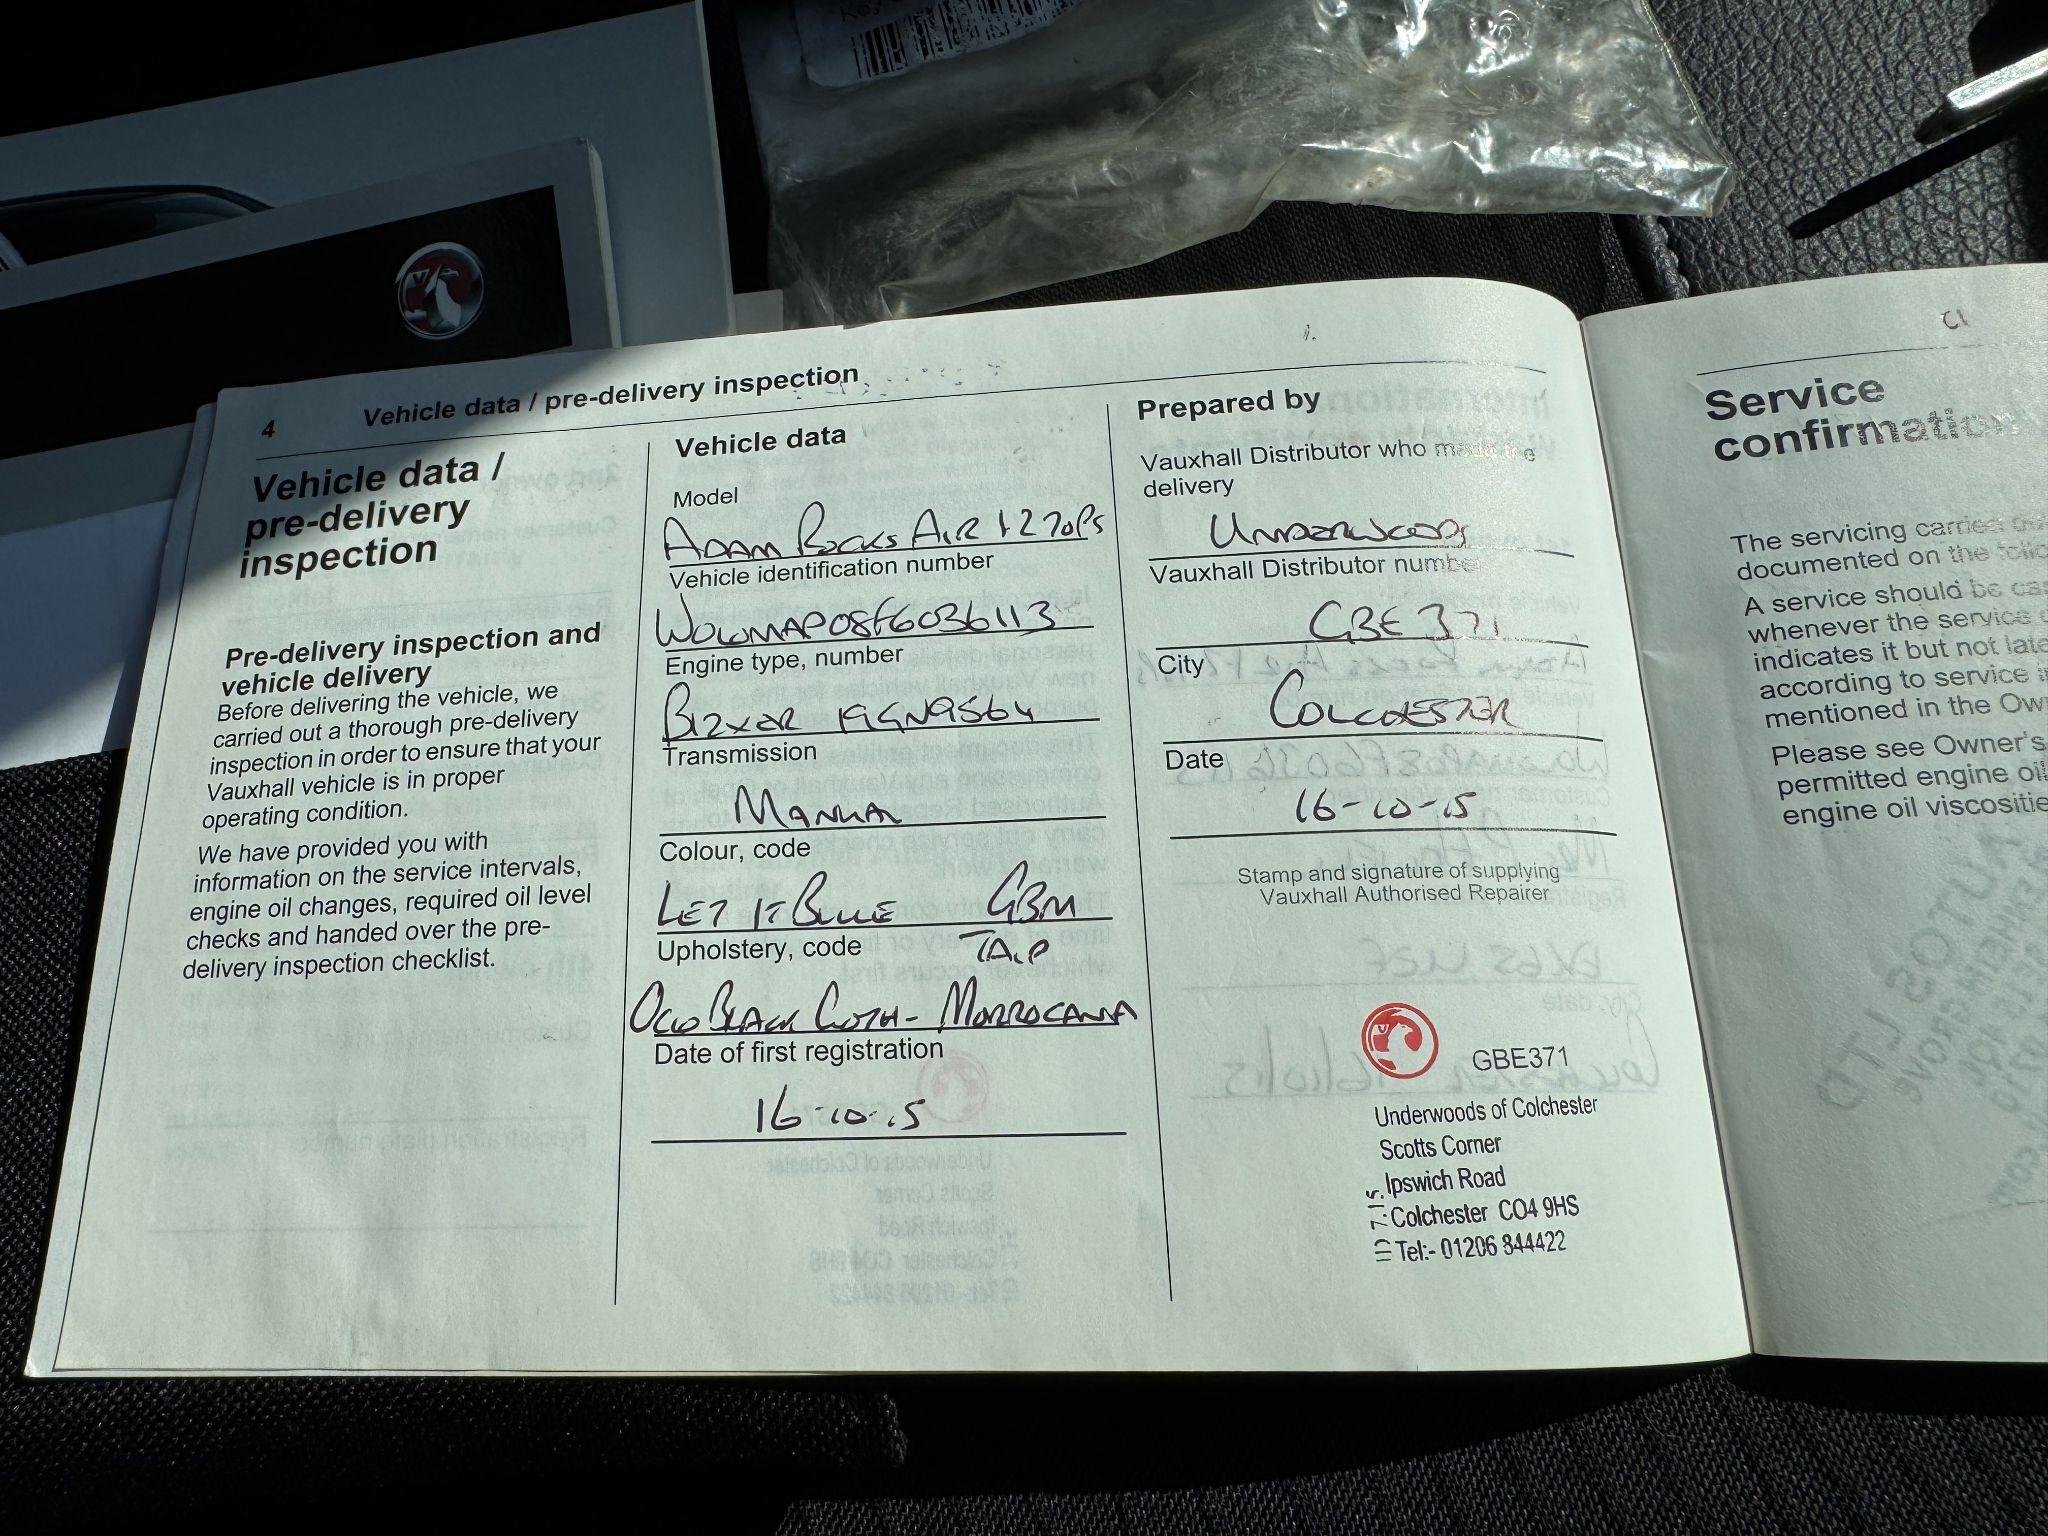 4 Vehicle data / pre-delivery inspection
Vehicle data /
pre-delivery
inspection
Pre-delivery inspection and
vehicle delivery
Before delivering the vehicle, we
carried out a thorough pre-delivery
inspection in order to ensure that your
Vauxhall vehicle is in proper
operating condition.
We have provided you with
information on the service intervals,
engine oil changes, required oil level
checks and handed over the pre-
delivery inspection checklist.
Vehicle data
Model
ADAM ROCKS AIR 1.2 70PS
Vehicle identification number
W0L0MAP08F6036113
Engine type, number
B12XER 19GN9564
Transmission
MANUAL
Colour, code
LET IT BLUE GBM
Upholstery, code TAIP
BLACK CLOTH - MORROCANA
Date of first registration
16-10-15
Prepared by
Vauxhall Distributor who made the
delivery
UNDERWOODS
Vauxhall Distributor number
GBE 371
City
COLCHESTER
Date
16-10-15
Stamp and signature of supplying
Vauxhall Authorised Repairer
GBE371
Underwoods of Colchester
Scotts Corner
Ipswich Road
Colchester CO4 9HS
Tel:- 01206 844422
Service
confirmation
The servicing carried
documented on the
A service should be
whenever the service
indicates it but not
according to service
mentioned in the
Please see Owner's
permitted engine oil
engine oil